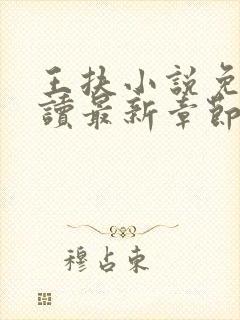 王扶小說免
讀最新章節
穆占東